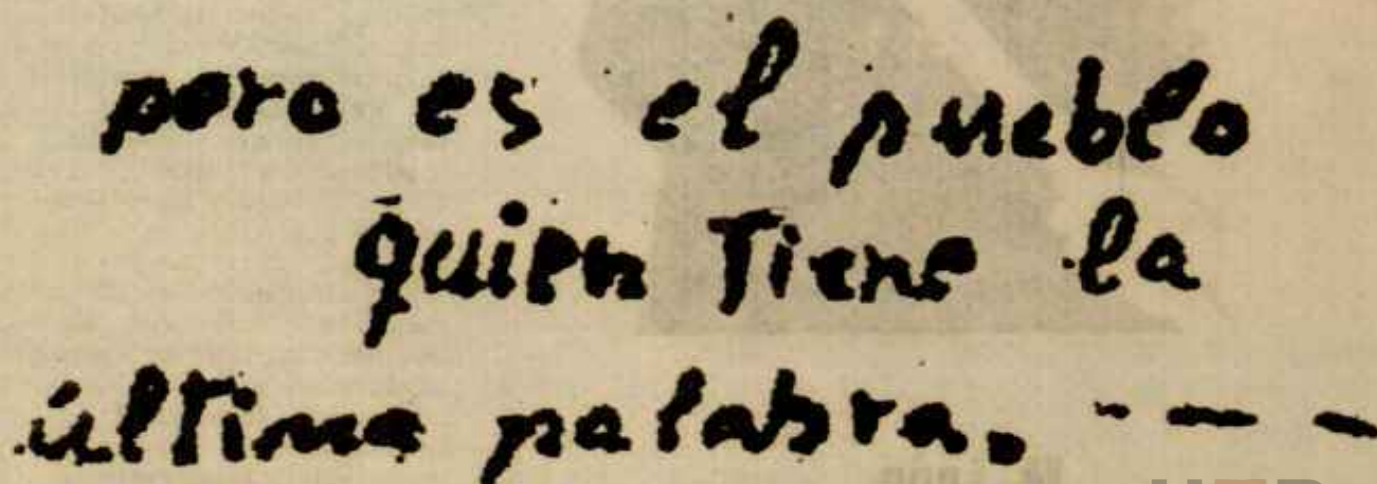 pero es el pueblo
quien Tiene la
última palabra. - - -